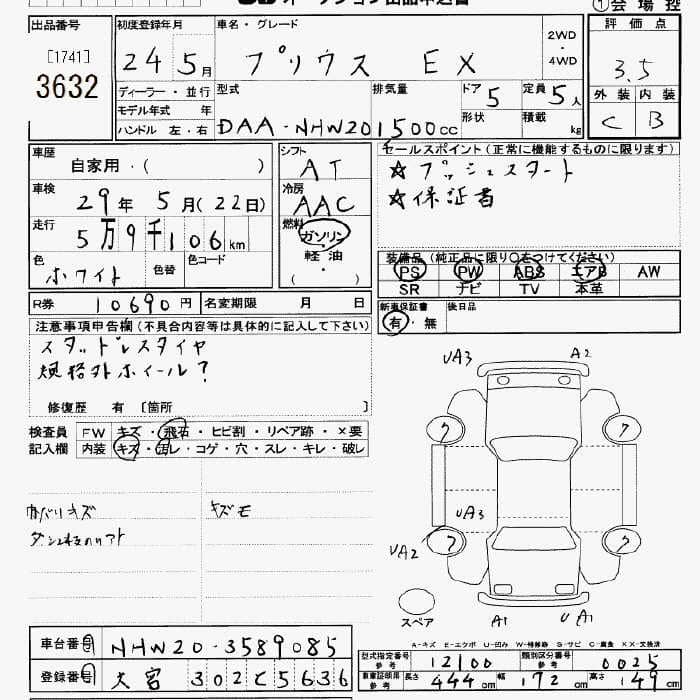 ① 会 場 控
出品番号
[1741]
3632
初度登録年月
24 5月
車名・グレード
プリウス EX
2WD
・
4WD
評 価 点
3.5
ディーラー・並行
モデル年式 年
ハンドル 左・右
型式
DAA-NHW20
排気量
1500cc
ドア 5
形状
定員 5人
積載 kg
外 装 内 装
C B
車歴
自家用・( )
車検
29年 5月(22日)
走行
5万9千106km
色
ホワイト
色替
色コード
シフト
AT
冷房
AAC
燃料
ガソリン・
軽 油・
( )
セールスポイント(正常に機能するものに限ります)
☆プッシュスタート
☆保証書
装備品(純正品に限り○をつけてください)
PS PW ABS エアB AW
SR ナビ TV 本革
R券 10690円
名変期限 月 日
新車保証書
有・無
後日品
注意事項申告欄(不具合内容等は具体的に記入して下さい)
スタッドレスタイヤ
規格外ホイール?
修復歴 有 [箇所 ]
検査員
記入欄
FW キズ・飛石・ヒビ割・リペア跡・×要
内装 キズ・凹レ・コゲ・穴・スレ・キレ・破レ
内バリキズ
キズモ
UA3
A2
ワ
ワ
UA3
UA2
ワ
ワ
スペア
A1
U A1
A-キズ E-エクボ U-凹み W-補修跡 S-サビ C-腐食 XX-交換済
車台番号 NHW20-3589085
登録番号 大宮 302 と 5636
型式指定番号
参 考
12100
類別区分番号
参 考
0025
車庫証明用
参 考
長さ 444cm 幅 172cm 高さ 149cm